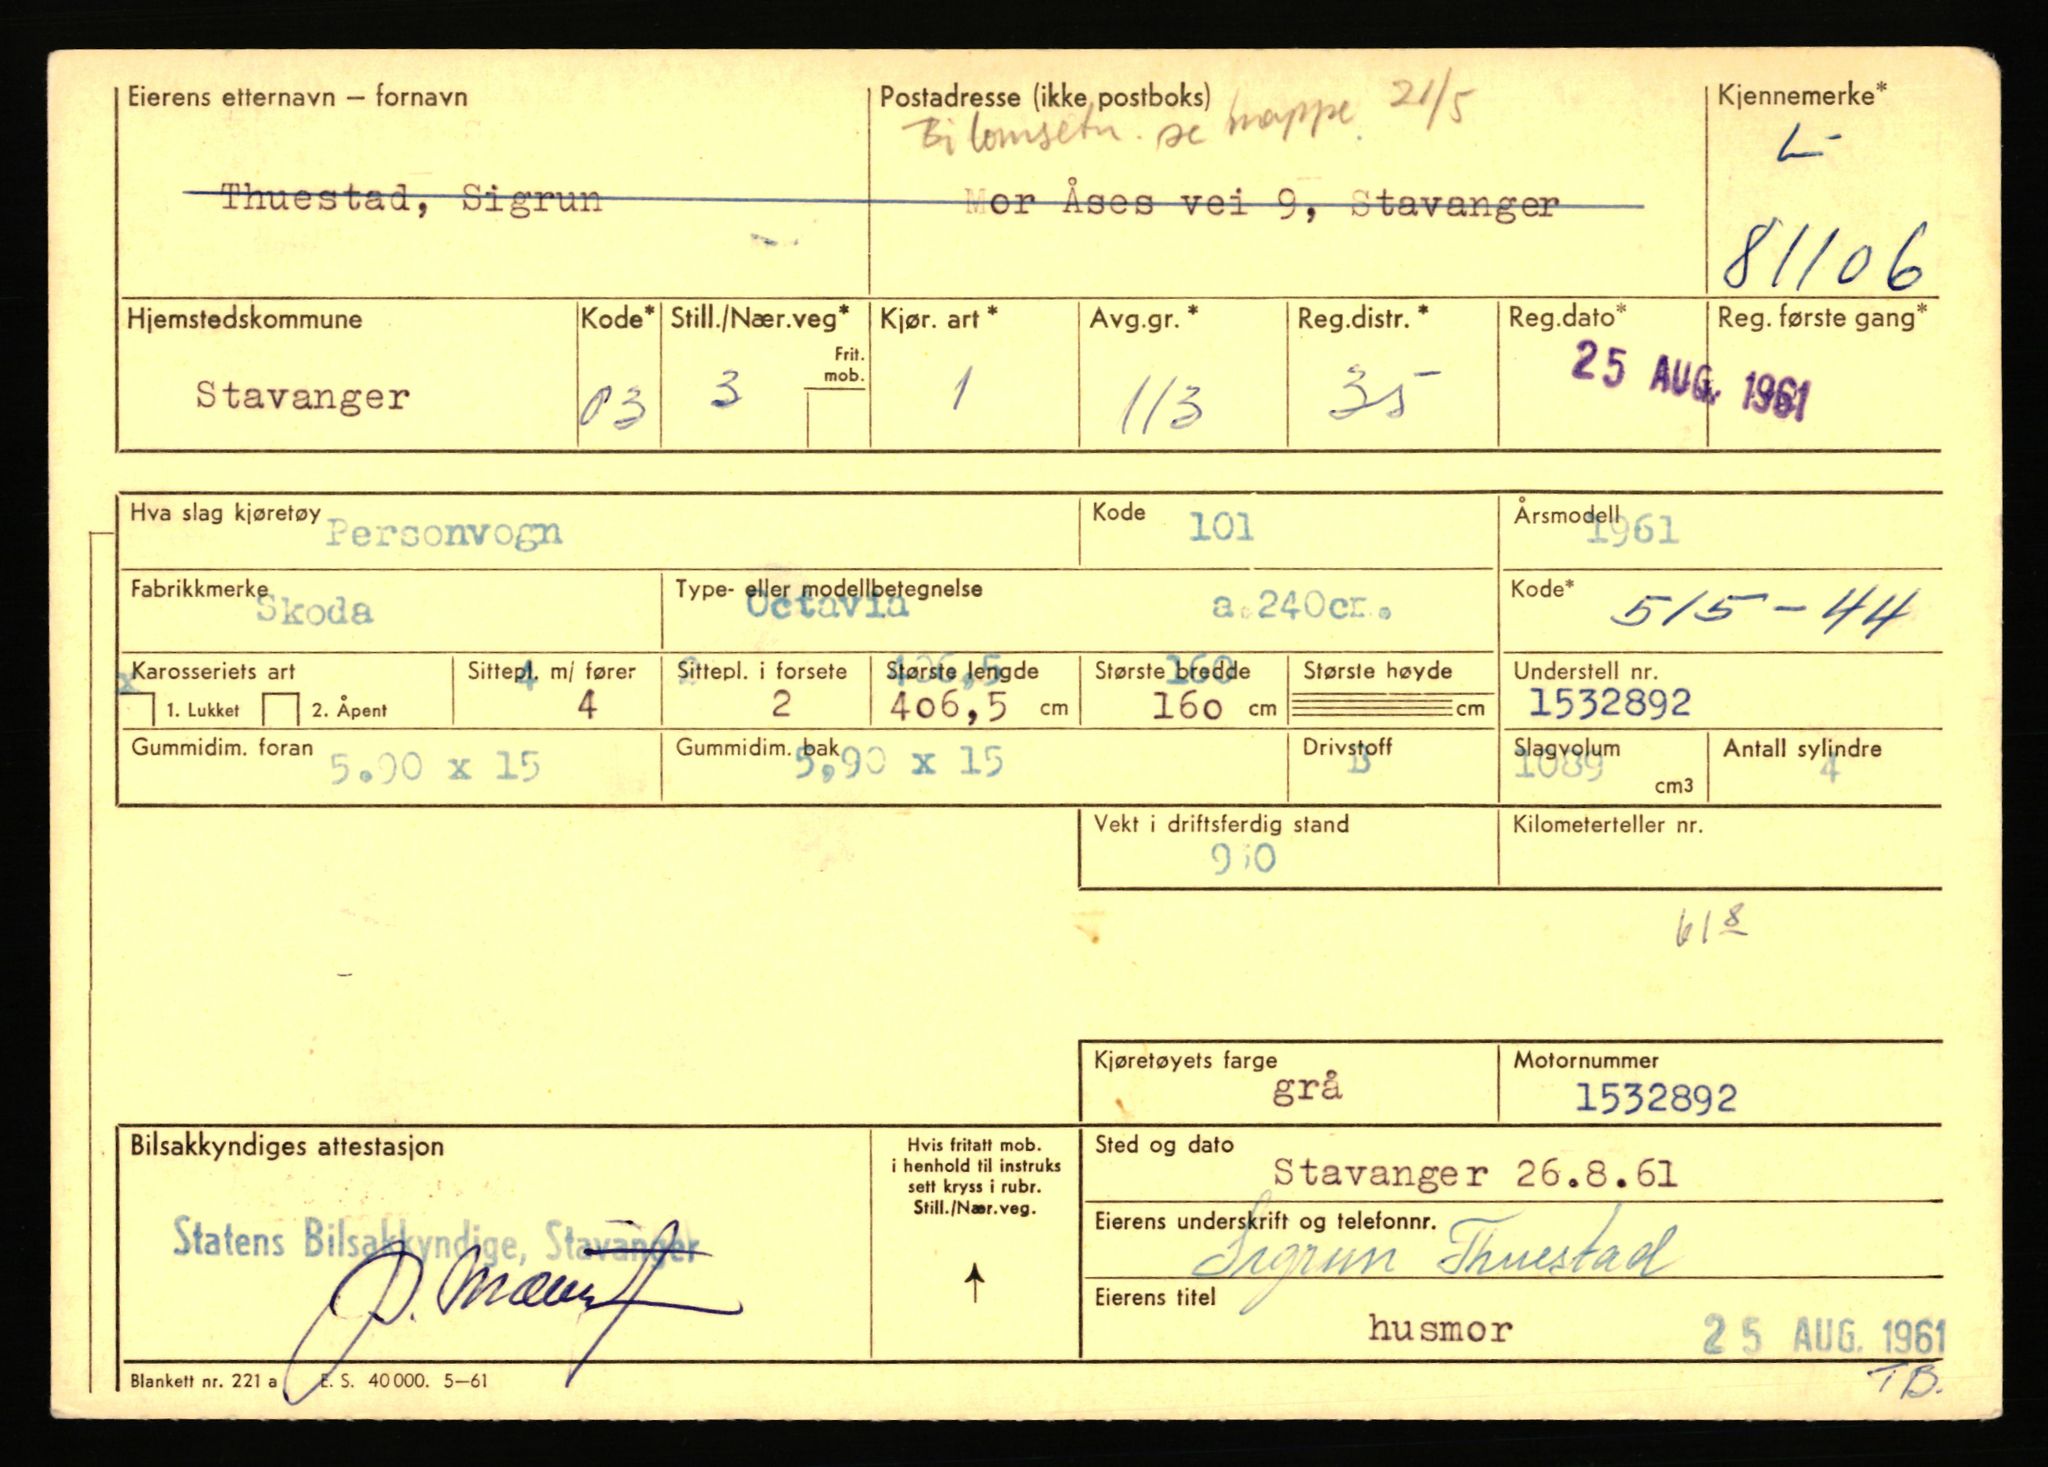 Eierens etternavn – fornavn
Postadresse (ikke postboks)
Kjennemerke*
Bilomsetn. se mappe 21/5
L-
Thuestad, Sigrun
Mor Åses vei 9, Stavanger
81106
Hjemstedskommune
Kode*
Still./Nær.veg*
Frit. mob.
Kjør. art *
Avg.gr. *
Reg.distr. *
Reg.dato*
Reg. første gang*
Stavanger
03
3
1
113
35
25 AUG. 1961
Hva slag kjøretøy
Personvogn
Kode
101
Årsmodell
1961
Fabrikkmerke
Skoda
Type- eller modellbetegnelse
Octavia
a.240cm.
Kode*
515-44
Karosseriets art
x
1. Lukket
2. Åpent
Sittepl. m/ fører
4
4
Sittepl. i forsete
2
2
Største lengde
406,5
406,5 cm
Største bredde
160
160 cm
Største høyde
cm
Understell nr.
1532892
Gummidim. foran
5.90 x 15
Gummidim. bak
5,90 x 15
Drivstoff
B
Slagvolum
1089
cm3
Antall sylindre
4
Vekt i driftsferdig stand
Kilometerteller nr.
618
Kjøretøyets farge
grå
Motornummer
1532892
Bilsakkyndiges attestasjon
Statens Bilsakkyndige, Stavanger
Hvis fritatt mob.
i henhold til instruks
sett kryss i rubr.
Still./Nær.veg.
Sted og dato
Stavanger 26.8.61
Eierens underskrift og telefonnr.
Sigrun Thuestad
Eierens titel
husmor
25 AUG. 1961
TB.
Blankett nr. 221 a E. S. 40 000. 5–61